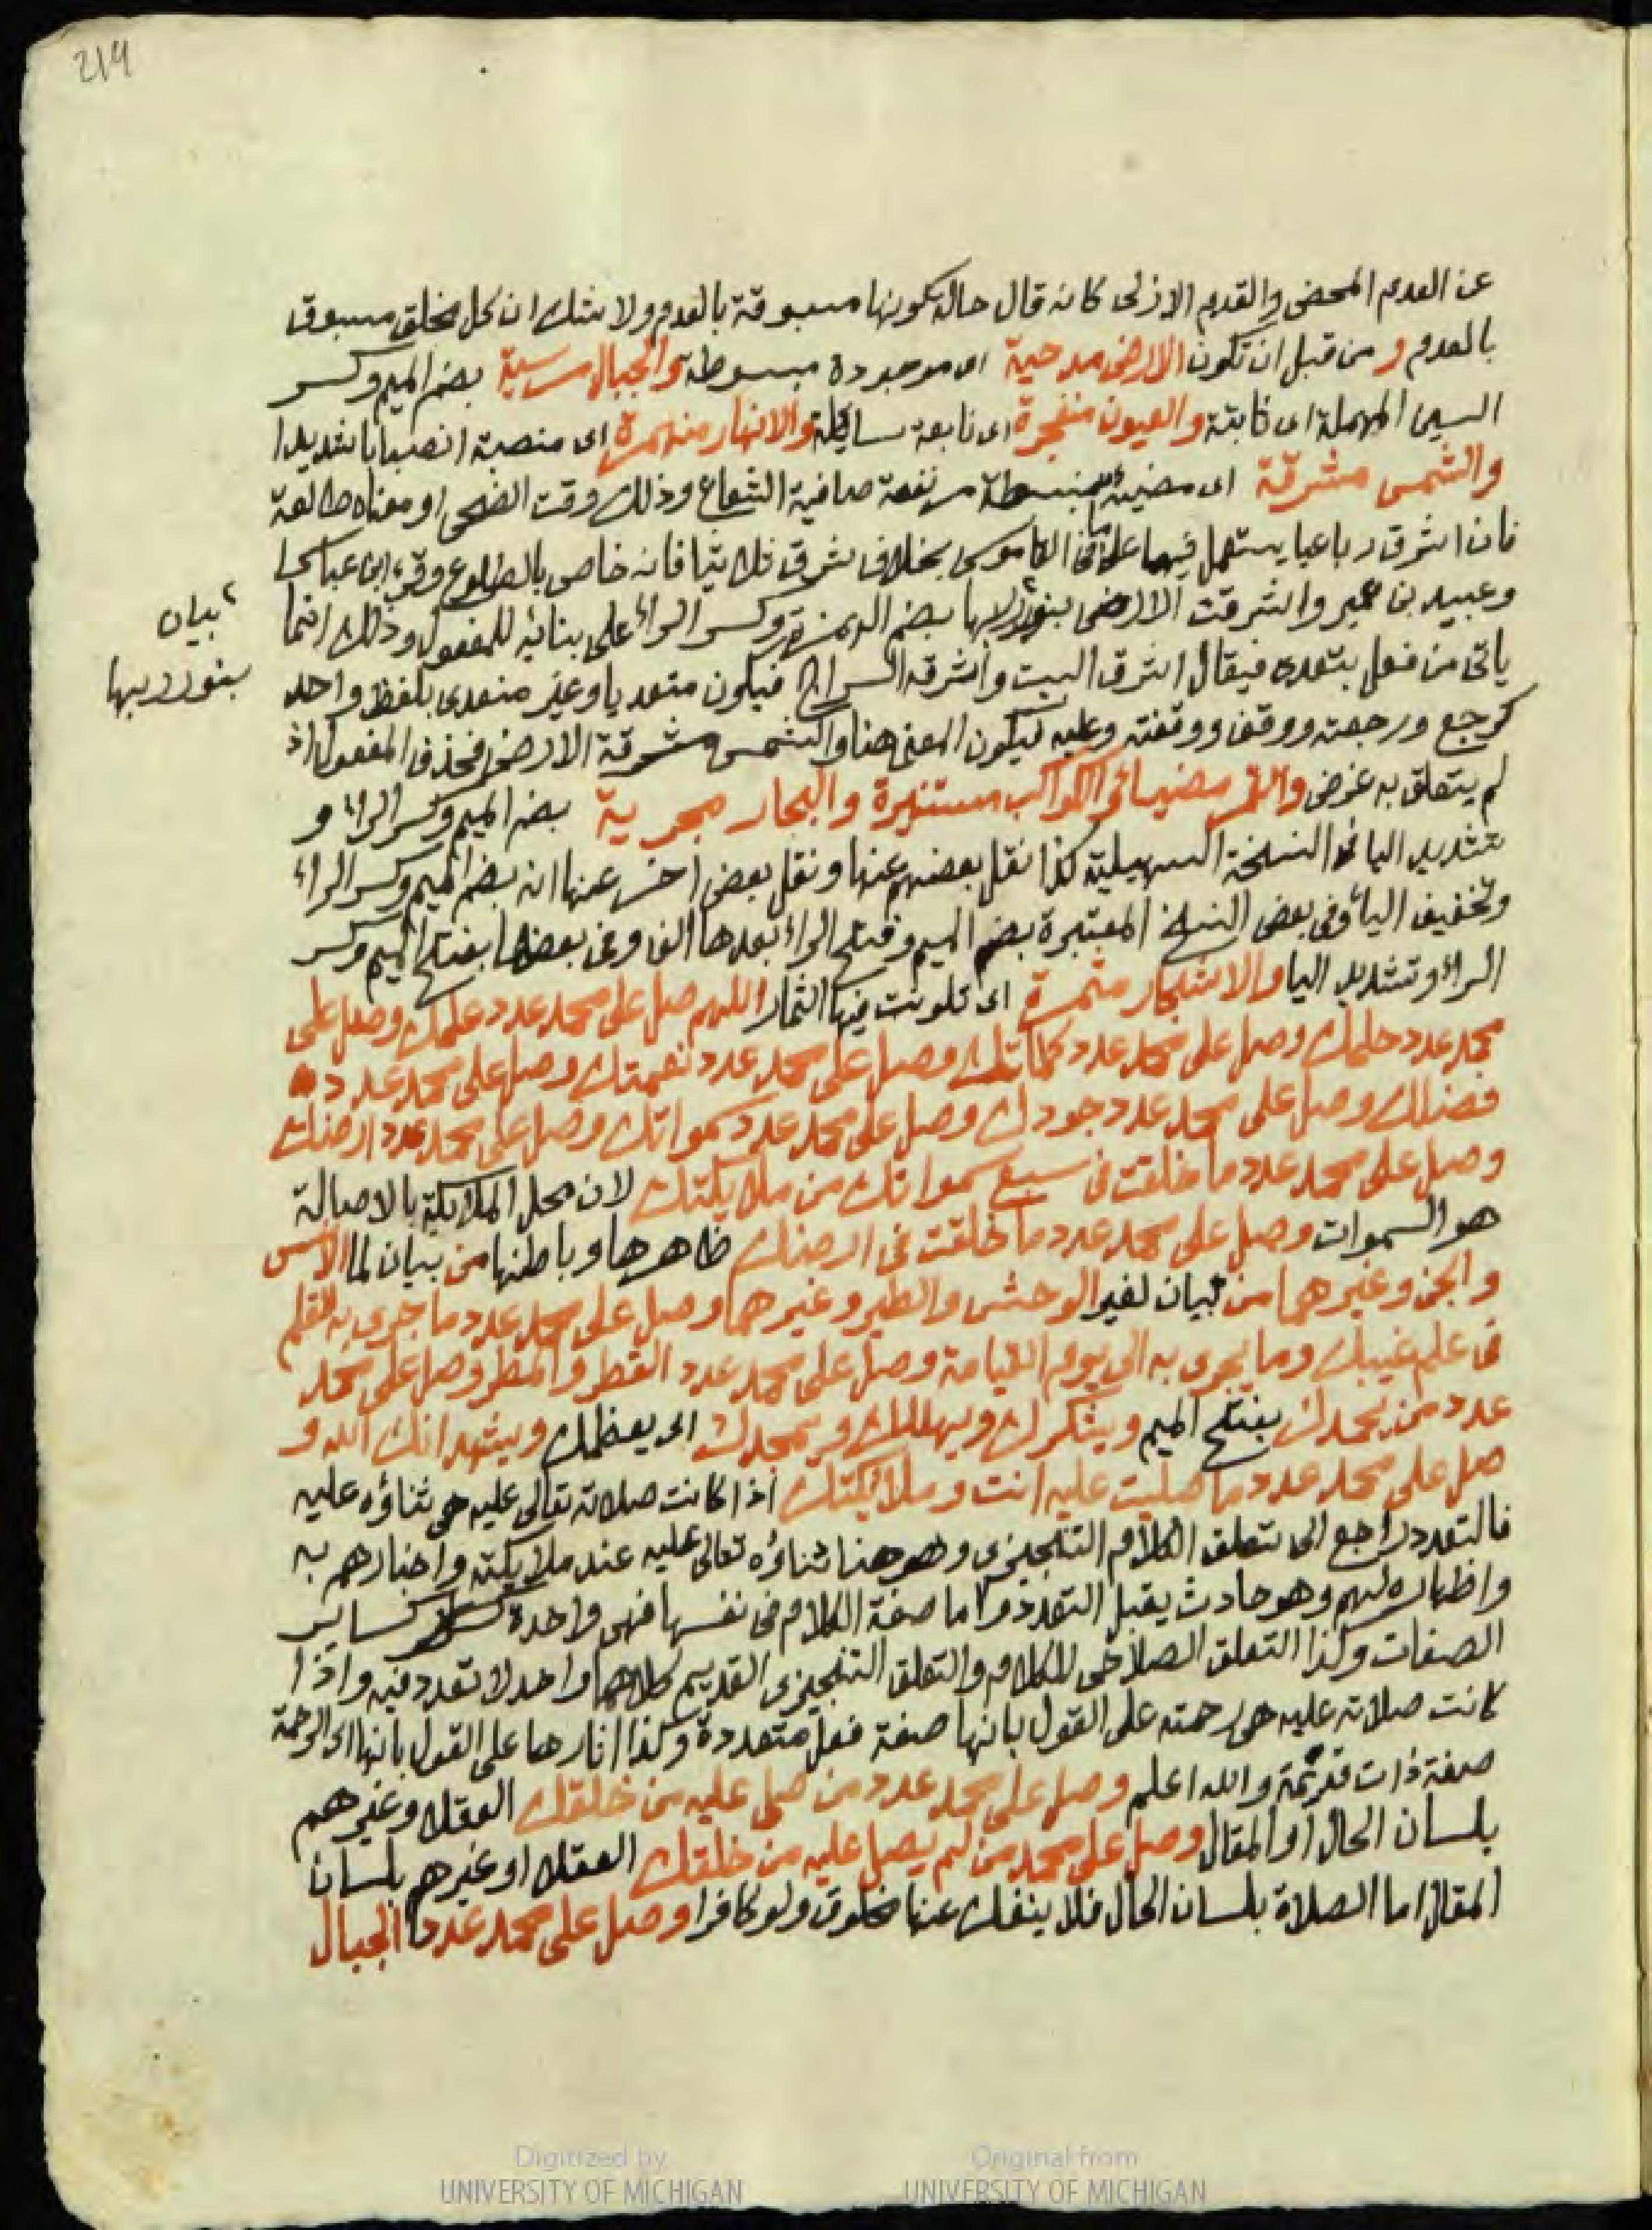 219
عن العدم المحض والقدم الازلى كانه قال حالة كونها مسبوقة بالعدم ولا شك ان كل مخلق مسبوق
بالعدم و من قبل ان تكون الارض مدحية اى موجودة مبسوطة والجبال مرسية بضم الميم وكسر
السين المهملة اى ثابتة والعيون منفجرة اى نابعة سايلة والانهار منهمرة اى منصبة انصبابا شديدا
والشمس مشرقة اى مضيئة منبسطة مرتفعة صافية الشعاع وذلك وقت الضحى او معناه طالعة
فان اشرق رباعيا يستعمل فيهما على ما فى القاموس بخلاف شرق ثلاثيا فانه خاص بالطلوع وقرئ ابن عباس
وعبيد بن عمير واشرقت الارض بنور ربها بضم الهمزة وكسر الراء على بنائه للمفعول وذلك انما
بيان
بنور ربها
ياتى من فعل يتعدى فيقال اشرق البيت واشرقه السراج فيكون متعديا وغير متعدى بلفظ واحد
كرجع ورجعته ووقف ووقفته وعليه فيكون المعنى هنا والشمس مشرقة الارض فحذف المفعول اذ
لم يتعلق به غرض والقمر مضيا والكواكب مستنيرة والبحار مجرية بضم الميم وكسر الراء و
تشديد اليا فى النسخة السهيلية كذا نقل بعضهم عنها ونقل بعض اخر عنها انه بضم الميم وكسر الراء
وتخفيف الياء وفى بعض النسخ المعتبرة بضم الميم وفتح الراء بعدها الف وفى بعضها بفتح الميم وكسر
الراء وتشديد اليا والاشجار مثمرة اى تلونت فيها الثمار اللهم صل على محمد عدد علمك وصل على
محمد عدد حلمك وصل على محمد عدد كلماتك وصل على محمد عدد نعمتك وصل على محمد عدد
فضلك وصل على محمد عدد جودك وصل على محمد عدد سمواتك وصل على محمد عدد ارضك
وصل على محمد عدد ما خلقت فى سبع سمواتك من ملايكتك لان محل الملايكة بالاصالة
هو السموات وصل على محمد عدد ما خلقت فى ارضك ظاهرها وباطنها من بيان لما الانس
والجن وغيرهما من بيان لغير الوحش والطير وغيرهما وصل على محمد عدد ما جرى به القلم
فى علم غيبك وما يجرى به الى يوم القيامة وصل على محمد عدد القطر والمطر وصل على محمد
عدد من يحمدك بفتح الميم ويشكرك ويهللك ويمجدك اى يعظمك ويشهد انك الله و
صل على محمد عدد ما صليت عليه انت وملائكتك اذا كانت صلاته تعالى عليه هى ثناؤه عليه
فالتعدد راجع الى تعلق الكلام التنجيزى وهو هنا ثناؤه تعالى عليه عند ملايكته واخبارهم به
واظهاره لهم وهو حادث يقبل التعدد واما صفة الكلام فى نفسها فهى واحدة كساير
الصفات وكذا التعلق الصلاحى للكلام والتعلق التنجيزى القديم كلاهما واحد لا تعدد فيه واذا
كانت صلاته عليه هى رحمته على القول بانها صفة فعل متعددة وكذا اثارها على القول بانها اى الرحمة
صفة ذات قديمة والله اعلم وصل على محمد عدد من صلى عليه من خلقك العقلا وغيرهم
بلسان الحال او المقال وصل على محمد من لم يصل عليه من خلقك العقلا او غيرهم بلسان
المقال اما الصلاة بلسان الحال فلا ينفك عنها مخلوق ولو كافرا وصل على محمد عدد ما الجبال
Digitized by
UNIVERSITY OF MICHIGAN
Original from
UNIVERSITY OF MICHIGAN